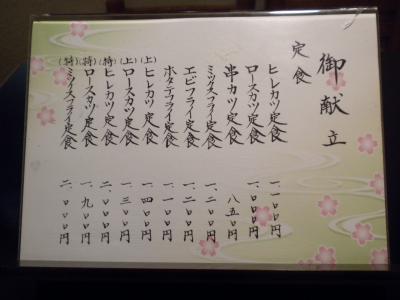 御献立
定食
ヒレカツ定食 一、一〇〇円
ロースカツ定食 一、〇〇〇円
串カツ定食 八五〇円
ミックスフライ定食 一、二〇〇円
エビフライ定食 一、二〇〇円
ホタテフライ定食 一、一〇〇円
(上)ヒレカツ定食 一、四〇〇円
(上)ロースカツ定食 一、三〇〇円
(特)ヒレカツ定食 二、〇〇〇円
(特)ロースカツ定食 一、九〇〇円
(特)ミックスフライ定食 二、〇〇〇円